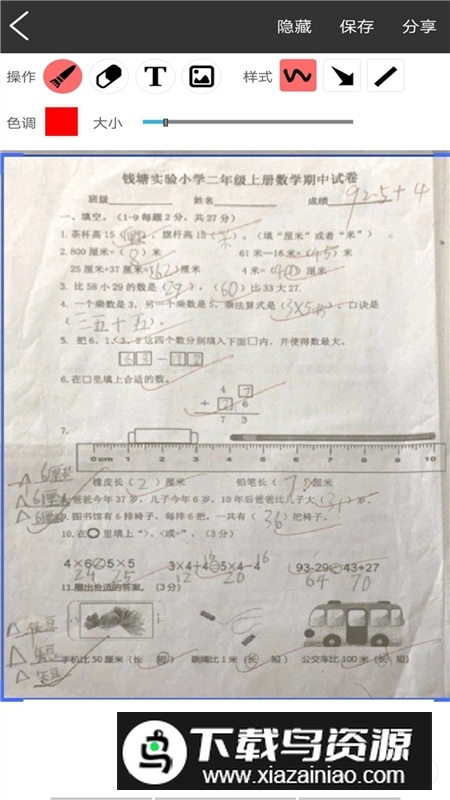 隐藏 保存 分享
操作 T 样式
色调 大小
钱塘实验小学二年级上册数学期中试卷
班级 姓名 成绩 92.5+4
一、填空。(1-9每题2分,共27分)
1.茶杯高15(厘米),旗杆高15(米)。(填“厘米”或者“米”)
2.800厘米=(8)米 61米-16米=(45)米
25厘米+37厘米=(62)厘米 4米=(400)厘米
3.比58小29的数是(29),(60)比33大27.
4.一个乘数是3,另一个乘数是5,乘法算式是(3×5),口诀是
(三五十五)。
5.把6、1、3、2这四个数分别填入下面□内,并使得数最大。
6 3 - 1 2
6.在□里填上合适的数。
4 7
+ 2 6
7 3
7.
0cm 1 2 3 4 5 6 7 8 9 10
橡皮长(2)厘米 铅笔长(7)厘米
6厘米
6厘米 爸爸今年37岁,儿子今年6岁,10年后爸爸比儿子大(31)岁。
6厘米 9.图书馆有6排椅子,每排6把。一共有(36)把椅子。
10.在○里填上“>、<或=”,(3分)
4×6 5×5 3×4+4 5×4-4 93-29 43+27
24 25 12 16 20 16 64 70
11.圈出合适的答案。(3分)
手机比50厘米(长 短) 跳绳比1米(长 短) 公交车比100米(长 短)
下载鸟资源
www.xiazainiao.com